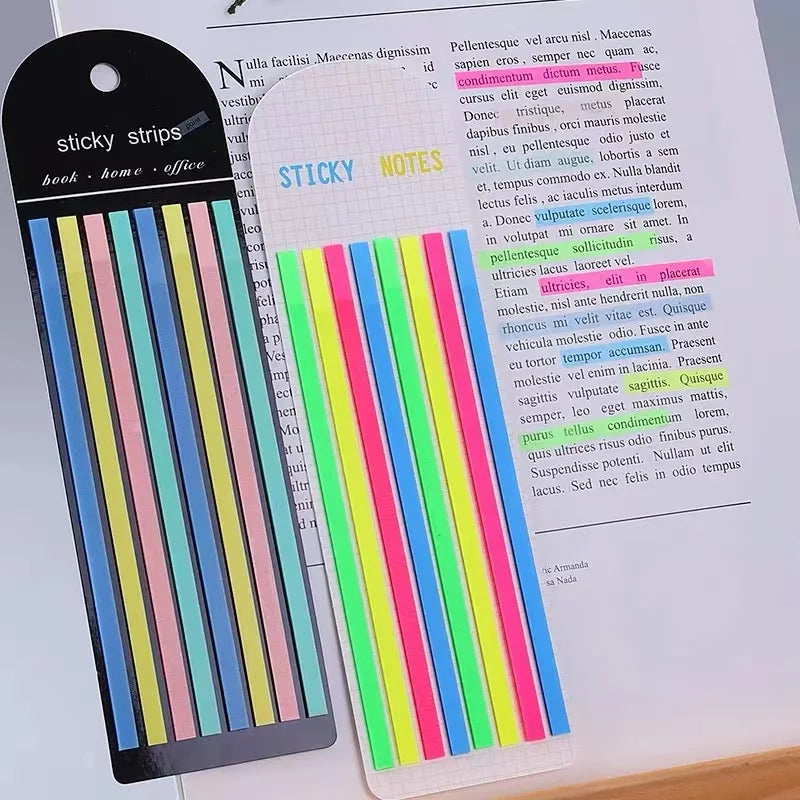 sticky strips point
book · home · office
STICKY NOTES
Nulla facilisi .Maecenas dignissim
mi
id
vestibu
ultri
just
Pellentesque vel arcu nisl . Maecenas
sapien eros , semper nec quam ac,
condimentum dictum metus. Fusce
cursus elit eget euismod dignissim,
Donec tristique, metus placerat
dapibus finibus , orci mauris molestie
nisl , eu pellentesque odio justo et
velit. Ut diam augue, lobortis a sem
et, tempus commodo ex. Nulla blandit
lectus felis , ac iaculis metus interdum
a. Donec vulputate scelerisque lorem,
in volutpat mi ornare sit amet. In
pellentesque sollicitudin risus, a
ultricies lacus laoreet vel.
Etiam ultricies, elit in placerat
molestie, nisl ante hendrerit nulla, non
rhoncus mi velit vitae est. Quisque
vehicula molestie odio. Fusce in ante
eu tortor tempor accumsan. Praesent
molestie vel enim in lacinia. Praesent
sagittis vulputate sagittis. Quisque
semper, leo eget maximus mattis,
purus tellus condimentum lorem,
quis ultrices risus odio finibus purus.
Suspendisse potenti. Nullam ut elit
lacus. Sed nec felis in odio tempus
ric Armanda
sa Nada